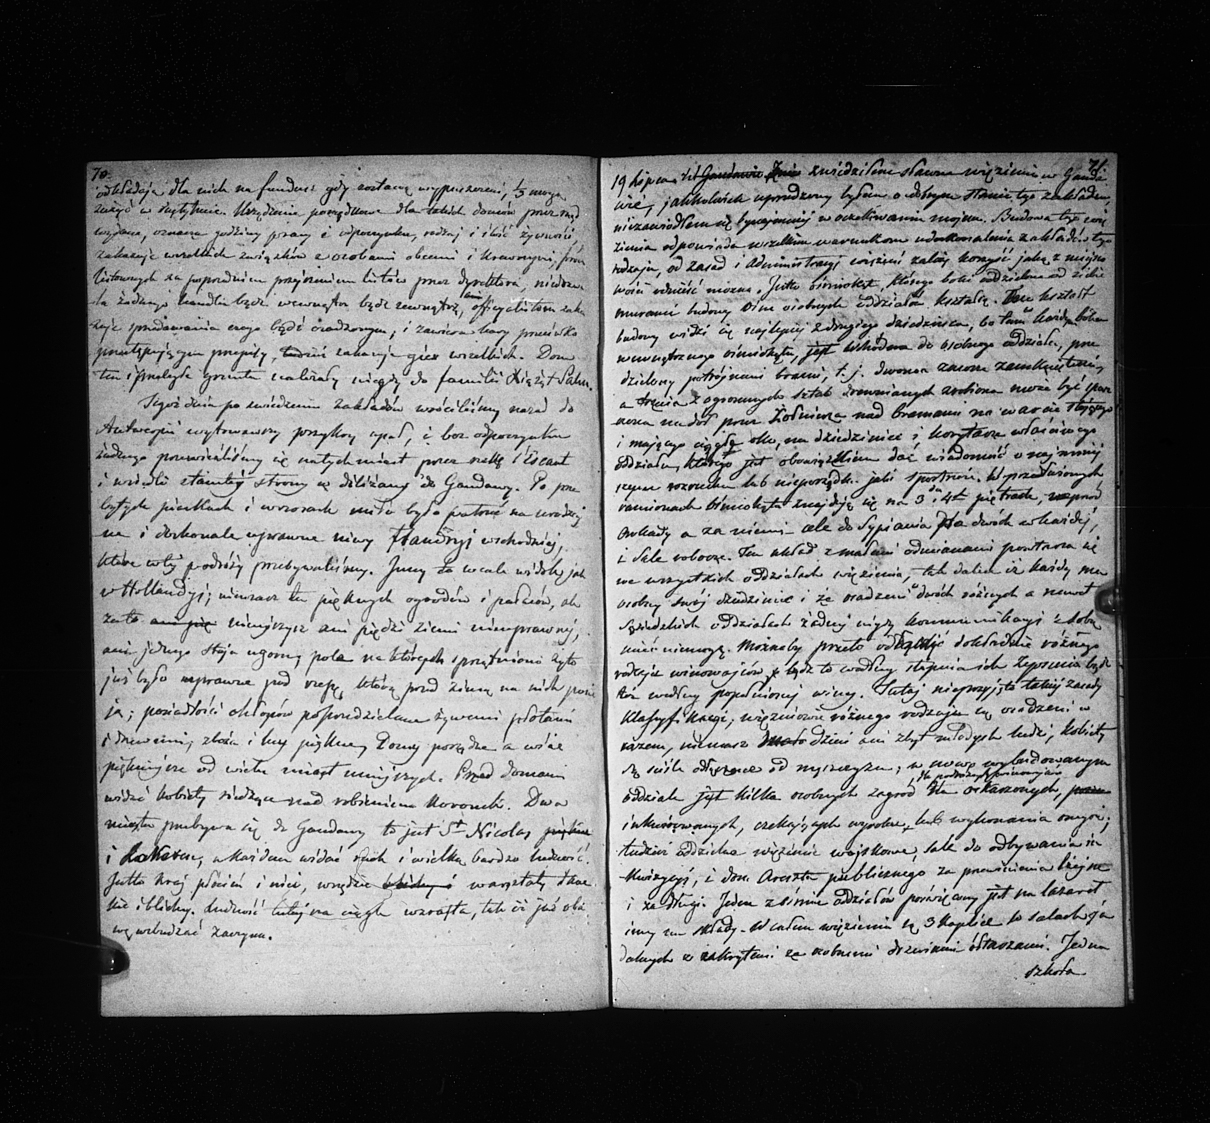 70.
odkładają dla nich na fundusz gdy zostaną wypuszczeni, 1/3 mogą
zużyć w instytucie. Urządzenia porządkowe dla takich domów przez rząd
wydane, oznacza godziny pracy i odpoczynku, rodzaj i ilość żywności,
zakazuje wszelkich związków z osobami obcemi i krewnymi, prócz
listownych za poprzedniem przejrzeniem listów przez dyrektora, niedozwa
la żadnego handlu bądź wewnątrz bądź zewnątrz, officyalistom zaka
zuje sprzedawania czego bądź osadzonym, i zawiera kary przeciwko
przestępującym przepisy, zakazuje gier wszelkich. Dom
ten i przyległe grunta należały niegdy do familii Książąt Salm.
Tegoż dnia po zwiedzeniu zakładów wróciliśmy nazad do
Antwerpii wytrzymawszy przykry upał, i bez odpoczynku
żadnego przewieźliśmy się natychmiast przez rzekę l'Escaut
i wsiedli z tamtej strony w diliżans do Gandawy. Po prze
bytych piaskach i wrzosach miło było patrzeć na urodzaj
ne i doskonale uprawne niwy Flandryi wschodniej,
które w tej podróży przebywaliśmy. Inny to wcale widok jak
w Hollandyi; niewidać tu pięknych ogrodów i pałaców, ale
za to niemasz ani piędzi ziemi nieuprawnej,
ani jednego staja ugoru, pola na których sprzątniono żyto
już było uprawne pod rzepę, którą przed zimą na nich posie
ją; posiadłości chłopów poprzedzielane żywemi płotami
i drzewami, zboża i lny piękne, Domy porządne a wsie
piękniejsze od wielu miast mniejszych. Przed domami
widać kobiety siedzące nad robieniem koronek. Dwa
miasta przebywa się do Gandawy to jest St Nicolas
i Lokeren, w każdem widać ruch i wielką bardzo ludność.
Jestto kraj płócien i nici, wszędzie warsztaty tkac
kie i blichy. Ludność tutejsza ciągle wzrasta, tak iż już oba
wę wzbudzać zaczyna.
71.
19 Lipca. zwiedziłem sławne więzienie w Ganda
wie, jakkolwiek uprzedzony byłem o dobrym stanie tego zakładu,
niezawiodłem się bynajmniej w oczekiwaniu mojem. Budowa tego wię
zienia odpowiada wszelkim warunkom udoskonalenia zakładów tego
rodzaju, od zasad i administracyi więzień zależy korzyść jaką z miejsc
wości odnieść można. Jestto ośmiokąt, którego boki oddzielone od siebie
murami budowy ośm osobnych oddziałów kształcą. Ten kształt
budowy widzi się najlepiej z drugiego dziedzińca, bo tam każdym bokiem
wewnętrznego ośmiokąta, wchodzi do osobnego oddziału, prze
dzielony potrójnemi bramy, t. j. dwoma zawsze zamkniętemi,
a trzecia z ogromnych sztab drewnianych zrobiona może być spusz
czona na dół przez żołnierza nad bramami na warcie stojącego
i mającego ciągłe oko, na dziedziniec i korytarze właściwego
oddziału, którego jest obowiązkiem dać wiadomość o najmniej
szym rozruchu lub nieporządku jaki spostrzeże. W przedłużonych
ramionach ośmiokąta znajdują się na 3 i 4m piętrach,
a za niemi cele do sypiania dla dwóch w każdej,
i sale robocze. Ten układ z małemi odmianami powtarza się
we wszystkich oddziałach więzienia, tak dalece iż każdy ma
osobny swój dziedziniec i że osadzeni w dwóch różnych a nawet
sąsiedzkich oddziałach żadnej między komunikacyi z sobą
mieć niemogą. Możnaby przeto odłączyć dokładnie różnego
rodzaju winowajców, bądź to według stopnia ich zepsucia bądź
też według popełnionej winy. Tutaj nieprzyjęto takiej zasady
klasyfikacyi, więźniowie różnego rodzaju są osadzeni w
razem, niemasz dzieci ani zbyt młodych ludzi, kobiety
są ściśle odłączone od mężczyzn, w nowo wybudowanym
oddziale jest kilka osobnych zagród dla oskarzonych,
inkwirowanych, czekających wyroku, lub wykonania onego;
tudzież oddzielne więzienie wojskowe, sale do odbywania in
kwizycyi, i dom Aresztu publicznego za przewinienia lżejsze
i za długi. Jeden z ośmiu oddziałów poświęcony jest na lazaret
inny na składy. W całem więzieniu są 3 kaplice w salach ja
dalnych z zakrytemi za osobnemi drzwiami ołtarzami. Jedna
szkoła